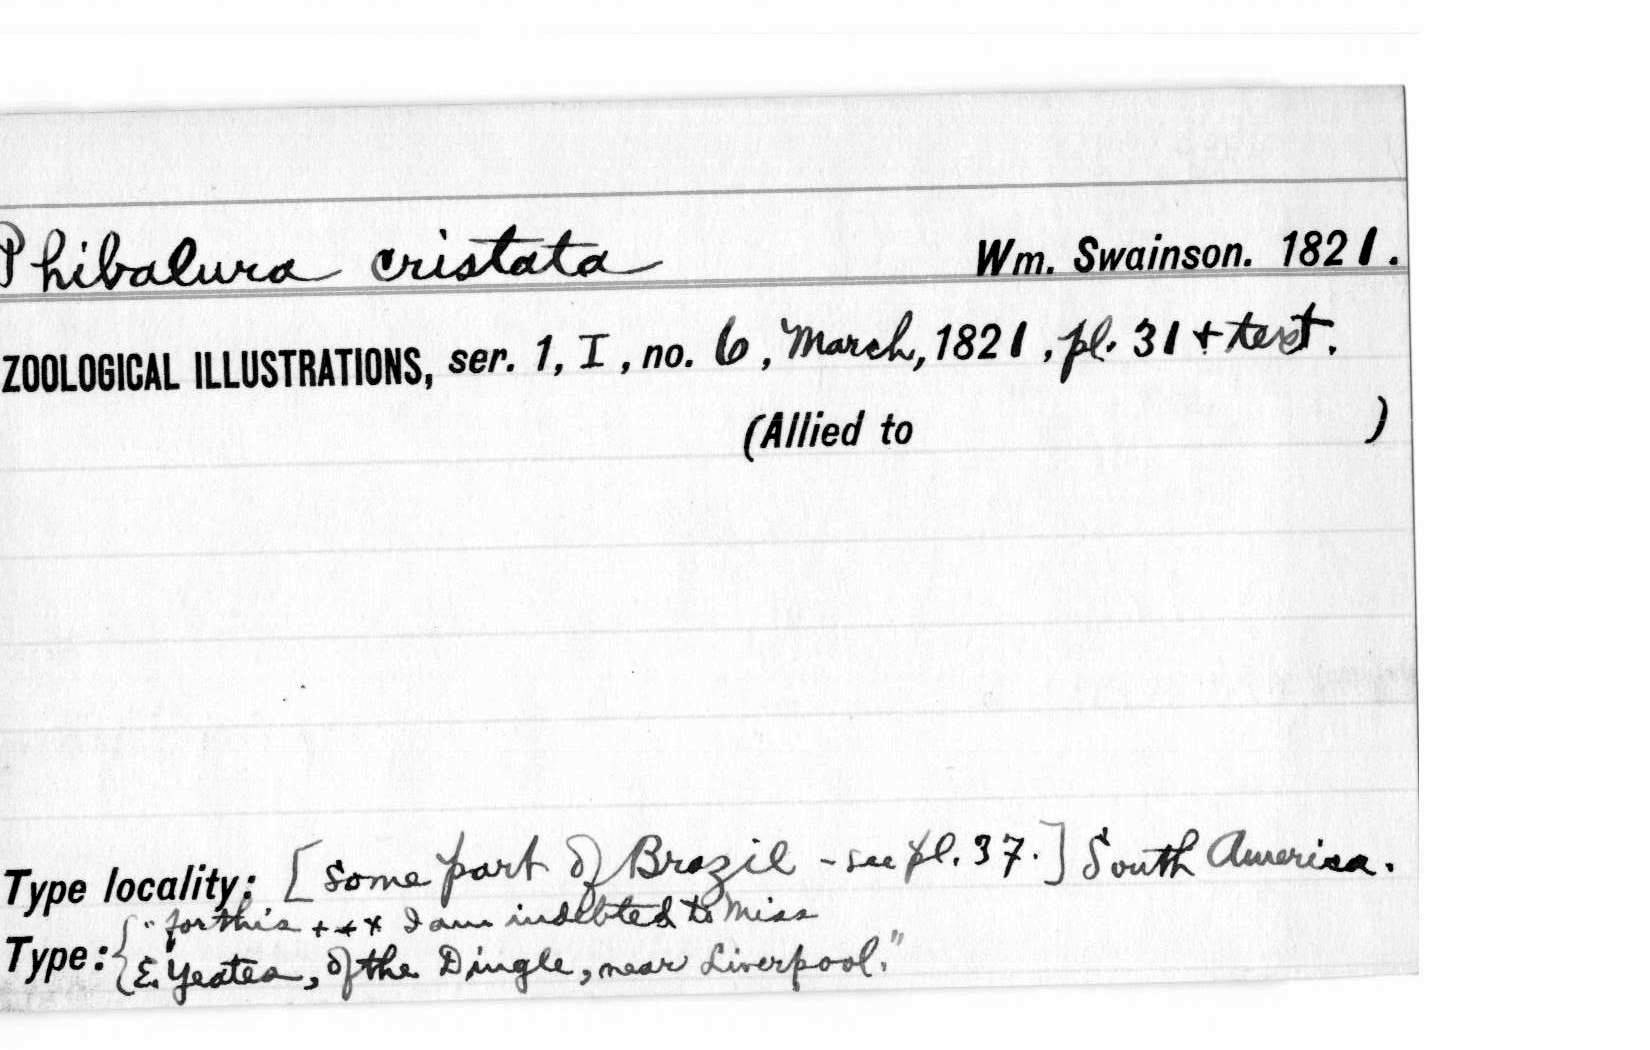 Phibalura cristata Wm. Swainson. 1821.
ZOOLOGICAL ILLUSTRATIONS, ser. 1, I, no. 6, March, 1821, pl. 31 + text.
(Allied to )
Type locality: [Some part of Brazil - see pl. 37.] South America.
Type: { "for this + + x I am indebted to Miss
E. Yeates, of the Dingle, near Liverpool."